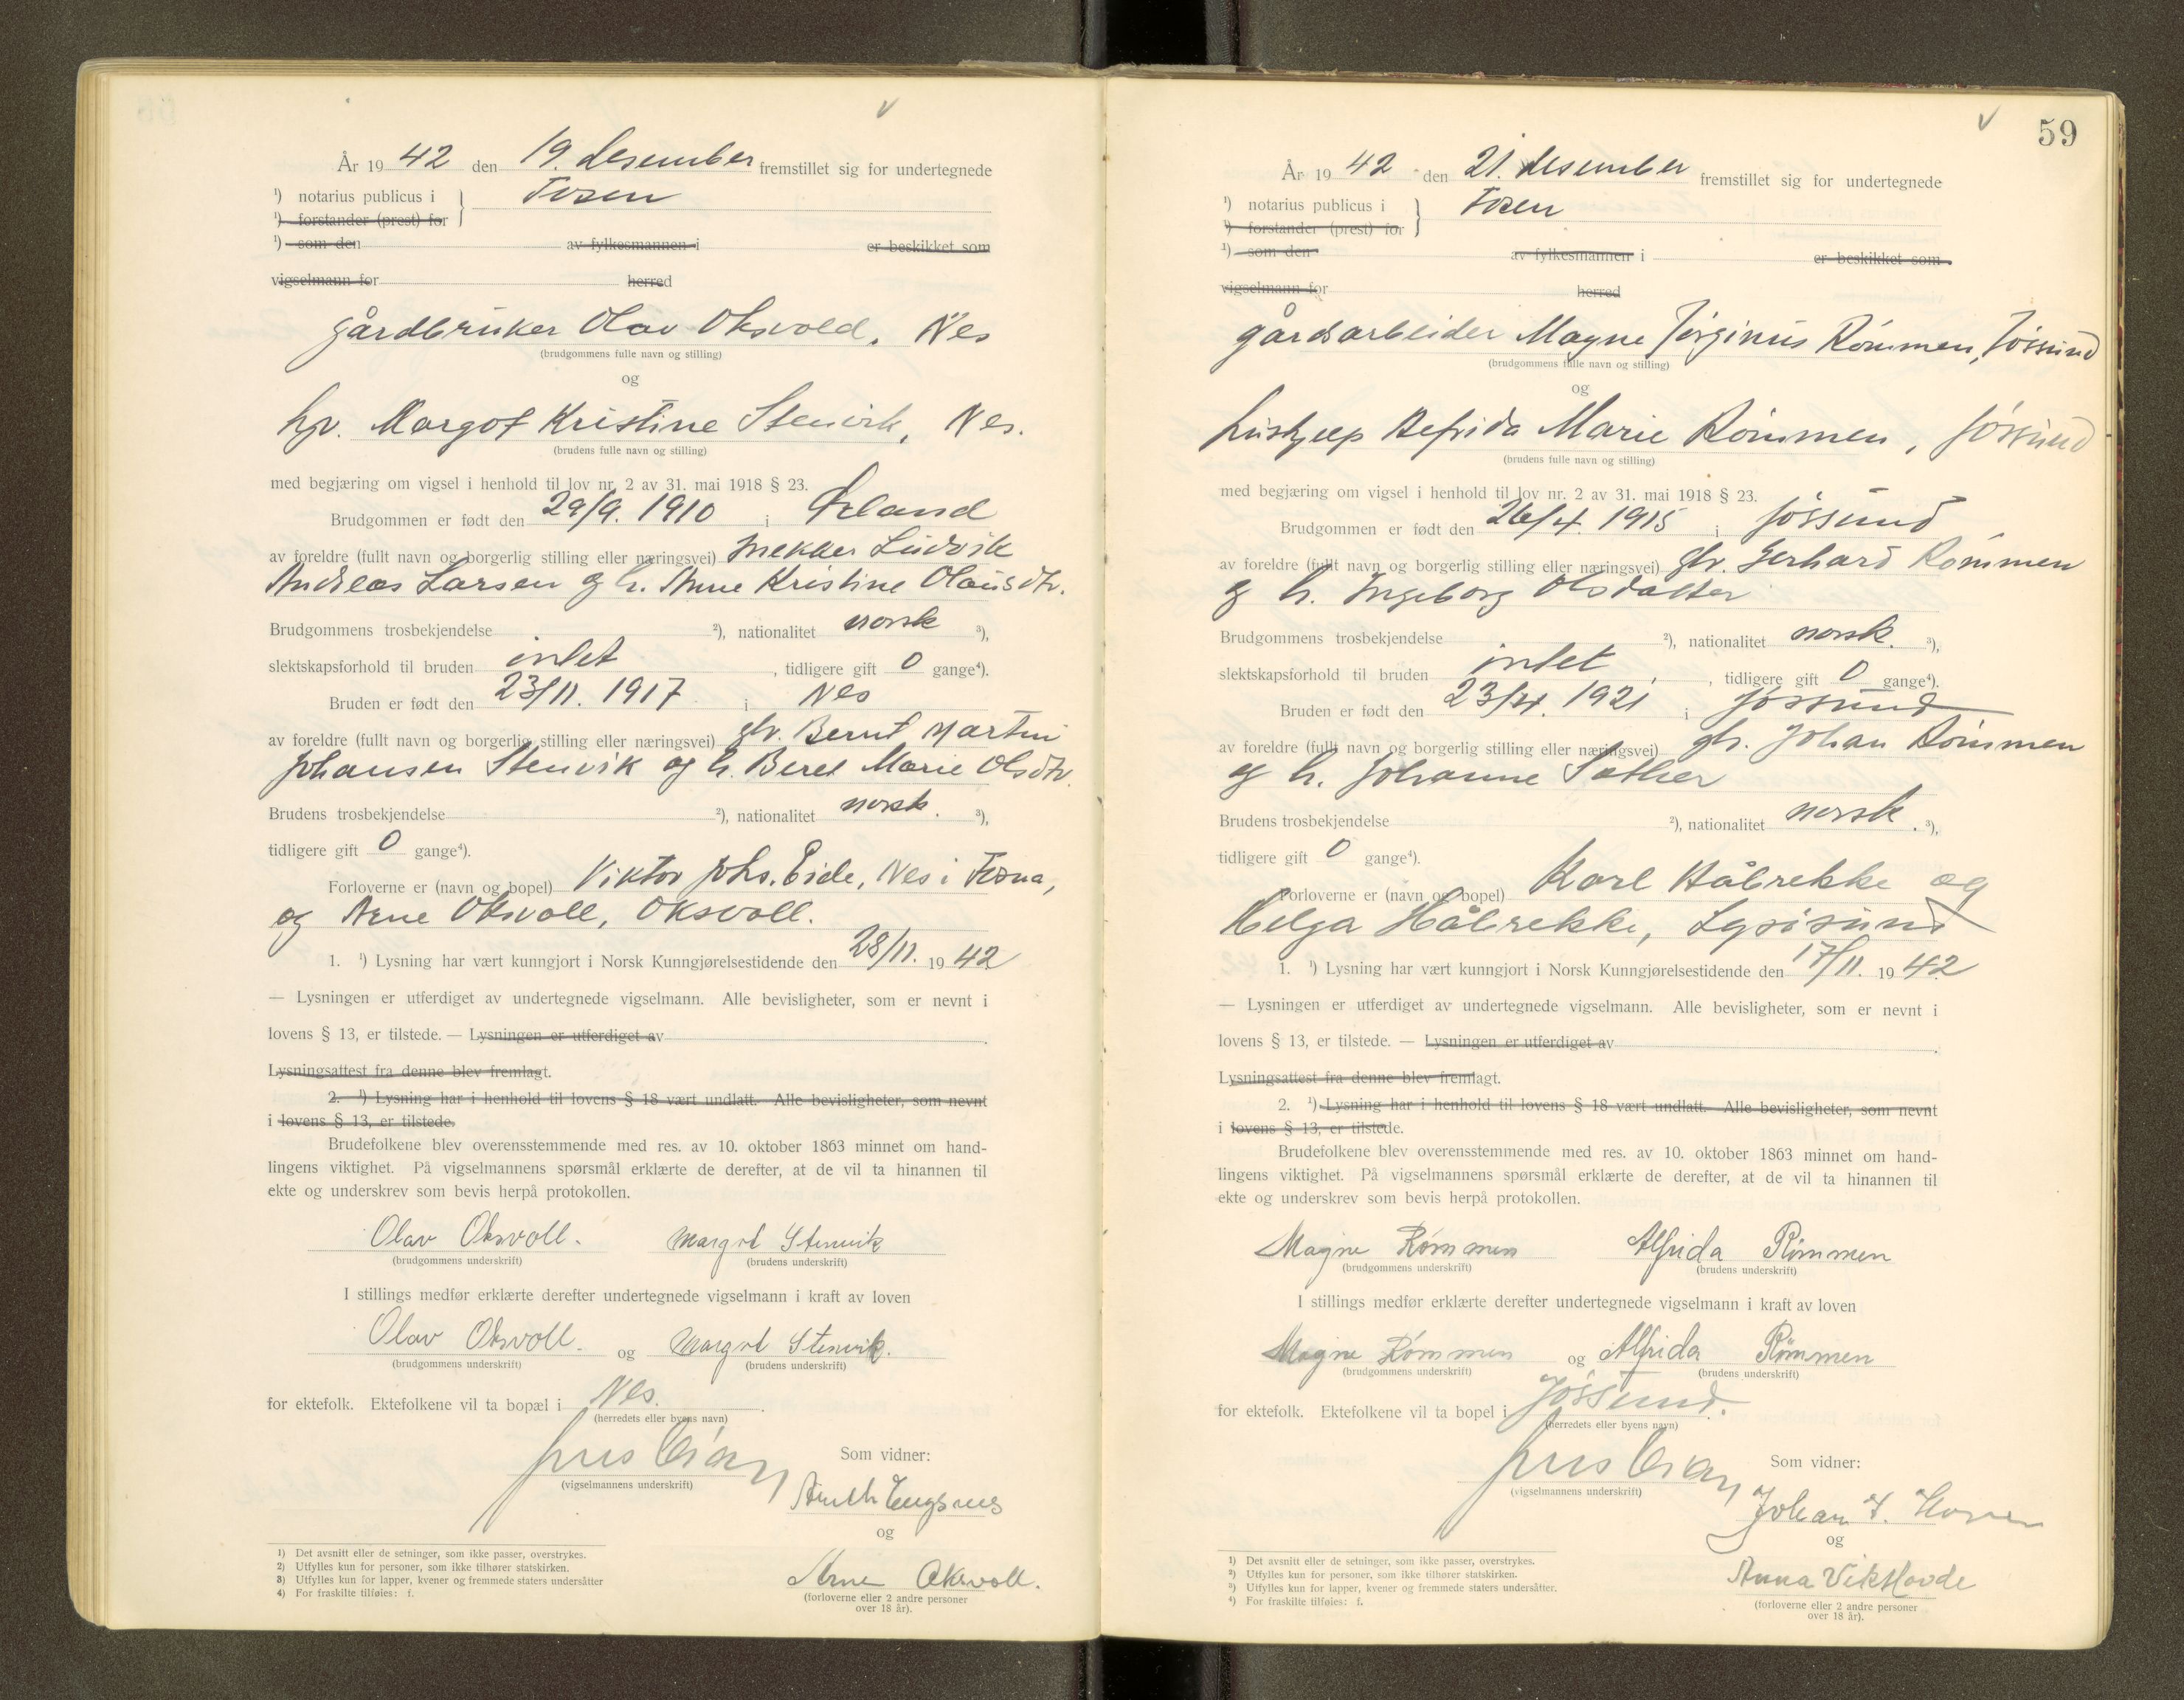 År 19 42 den 19. desember fremstillet sig for undertegnede
¹) notarius publicus i } Fosen
¹) forstander (prest) for
¹) som den av fylkesmannen i er beskikket som
vigselmann for herred
gårdbruker Olav Oksvold, Nes
(brudgommens fulle navn og stilling)
og
hp. Margot Kristine Stenvik, Nes.
(brudens fulle navn og stilling)
med begjæring om vigsel i henhold til lov nr. 2 av 31. mai 1918 § 23.
Brudgommen er født den 29/9. 1910 i Ørland
av foreldre (fullt navn og borgerlig stilling eller næringsvei) Ludvik
Andreas Larsen og h. Anne Kristine Olausdtr.
Brudgommens trosbekjendelse ²), nationalitet norsk ³),
slektskapsforhold til bruden intet, tidligere gift 0 gange⁴).
Bruden er født den 23/11. 1917 i Nes
av foreldre (fullt navn og borgerlig stilling eller næringsvei) gbr. Bernt Martin
Johansen Stenvik og h. Beret Marie Olsdtr.
Brudens trosbekjendelse ²), nationalitet norsk. ³),
tidligere gift 0 gange⁴).
Forloverne er (navn og bopel) Viktor Johs. Eide, Nes i Fosna,
og Arne Oksvoll, Oksvoll.
1. ¹) Lysning har vært kunngjort i Norsk Kunngjørelsestidende den 28/11. 19 42
— Lysningen er utferdiget av undertegnede vigselmann. Alle bevisligheter, som er nevnt i
lovens § 13, er tilstede. — Lysningen er utferdiget av
Lysningsattest fra denne blev fremlagt.
2. ¹) Lysning har i henhold til lovens § 18 vært undlatt. Alle bevisligheter, som nevnt
i lovens § 13, er tilstede.
Brudefolkene blev overensstemmende med res. av 10. oktober 1863 minnet om hand-
lingens viktighet. På vigselmannens spørsmål erklærte de derefter, at de vil ta hinannen til
ekte og underskrev som bevis herpå protokollen.
Olav Oksvoll. Margot Stenvik
(brudgommens underskrift) (brudens underskrift)
I stillings medfør erklærte derefter undertegnede vigselmann i kraft av loven
Olav Oksvoll. og Margot Stenvik.
(brudgommens underskrift) (brudens underskrift)
for ektefolk. Ektefolkene vil ta bopæl i Nes.
(herredets eller byens navn)
Som vidner:
(vigselmannens underskrift)
og
Arne Oksvoll.
(forloverne eller 2 andre personer
over 18 år).
1) Det avsnitt eller de setninger, som ikke passer, overstrykes.
2) Utfylles kun for personer, som ikke tilhører statskirken.
3) Utfylles kun for lapper, kvener og fremmede staters undersåtter
4) For fraskilte tilføies: f.
59
År 19 42 den 21. desember fremstillet sig for undertegnede
¹) notarius publicus i } Fosen
¹) forstander (prest) for
¹) som den av fylkesmannen i er beskikket som
vigselmann for herred
gårdsarbeider Magne Jørginus Rømmen, Jøssund
(brudgommens fulle navn og stilling)
og
hushjelp Alfrida Marie Rømmen, Jøssund
(brudens fulle navn og stilling)
med begjæring om vigsel i henhold til lov nr. 2 av 31. mai 1918 § 23.
Brudgommen er født den 26/4. 1915 i Jøssund
av foreldre (fullt navn og borgerlig stilling eller næringsvei) gbr. Gerhard Rømmen
og h. Ingeborg Olsdatter
Brudgommens trosbekjendelse ²), nationalitet norsk. ³),
slektskapsforhold til bruden intet, tidligere gift 0 gange⁴).
Bruden er født den 23/4. 1921 i Jøssund
av foreldre (fullt navn og borgerlig stilling eller næringsvei) gbr. Johan Rømmen
og h. Johanne Sæther
Brudens trosbekjendelse ²), nationalitet norsk. ³),
tidligere gift 0 gange⁴).
Forloverne er (navn og bopel) Karl Hålrekke og
Helga Hålrekke, Lysøsund
1. ¹) Lysning har vært kunngjort i Norsk Kunngjørelsestidende den 17/11. 19 42
— Lysningen er utferdiget av undertegnede vigselmann. Alle bevisligheter, som er nevnt i
lovens § 13, er tilstede. — Lysningen er utferdiget av
Lysningsattest fra denne blev fremlagt.
2. ¹) Lysning har i henhold til lovens § 18 vært undlatt. Alle bevisligheter, som nevnt
i lovens § 13, er tilstede.
Brudefolkene blev overensstemmende med res. av 10. oktober 1863 minnet om hand-
lingens viktighet. På vigselmannens spørsmål erklærte de derefter, at de vil ta hinannen til
ekte og underskrev som bevis herpå protokollen.
Magne Rømmen Alfrida Rømmen
(brudgommens underskrift) (brudens underskrift)
I stillings medfør erklærte derefter undertegnede vigselmann i kraft av loven
Magne Rømmen og Alfrida Rømmen
(brudgommens underskrift) (brudens underskrift)
for ektefolk. Ektefolkene vil ta bopel i Jøssund.
(herredets eller byens navn)
Som vidner:
(vigselmannens underskrift)
Johan
og
Anna Vikskovde
(forloverne eller 2 andre personer
over 18 år).
¹) Det avsnitt eller de setninger, som ikke passer, overstrykes.
²) Utfylles kun for personer, som ikke tilhører statskirken.
³) Utfylles kun for lapper, kvener og fremmede staters undersåtter.
⁴) For fraskilte tilføies: f.